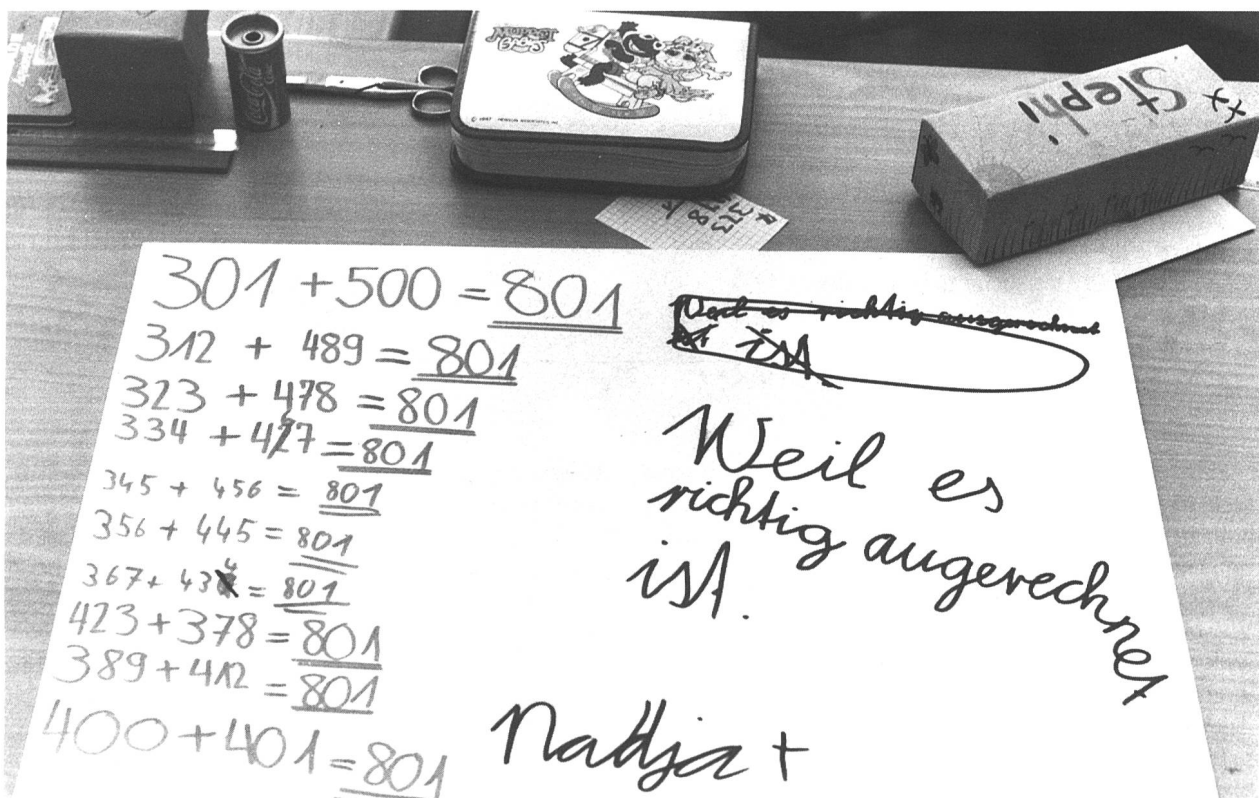 Coca-Cola
© 1987 HENSON ASSOCIATES, INC.
Stephi
373
301 + 500 = 801
312 + 489 = 801
323 + 478 = 801
334 + 467 = 801
345 + 456 = 801
356 + 445 = 801
367 + 434 = 801
423 + 378 = 801
389 + 412 = 801
400 + 401 = 801
Weil es richtig ausgerechnet
ist ist
Weil es
richtig augerechnet
ist.
Nadja +